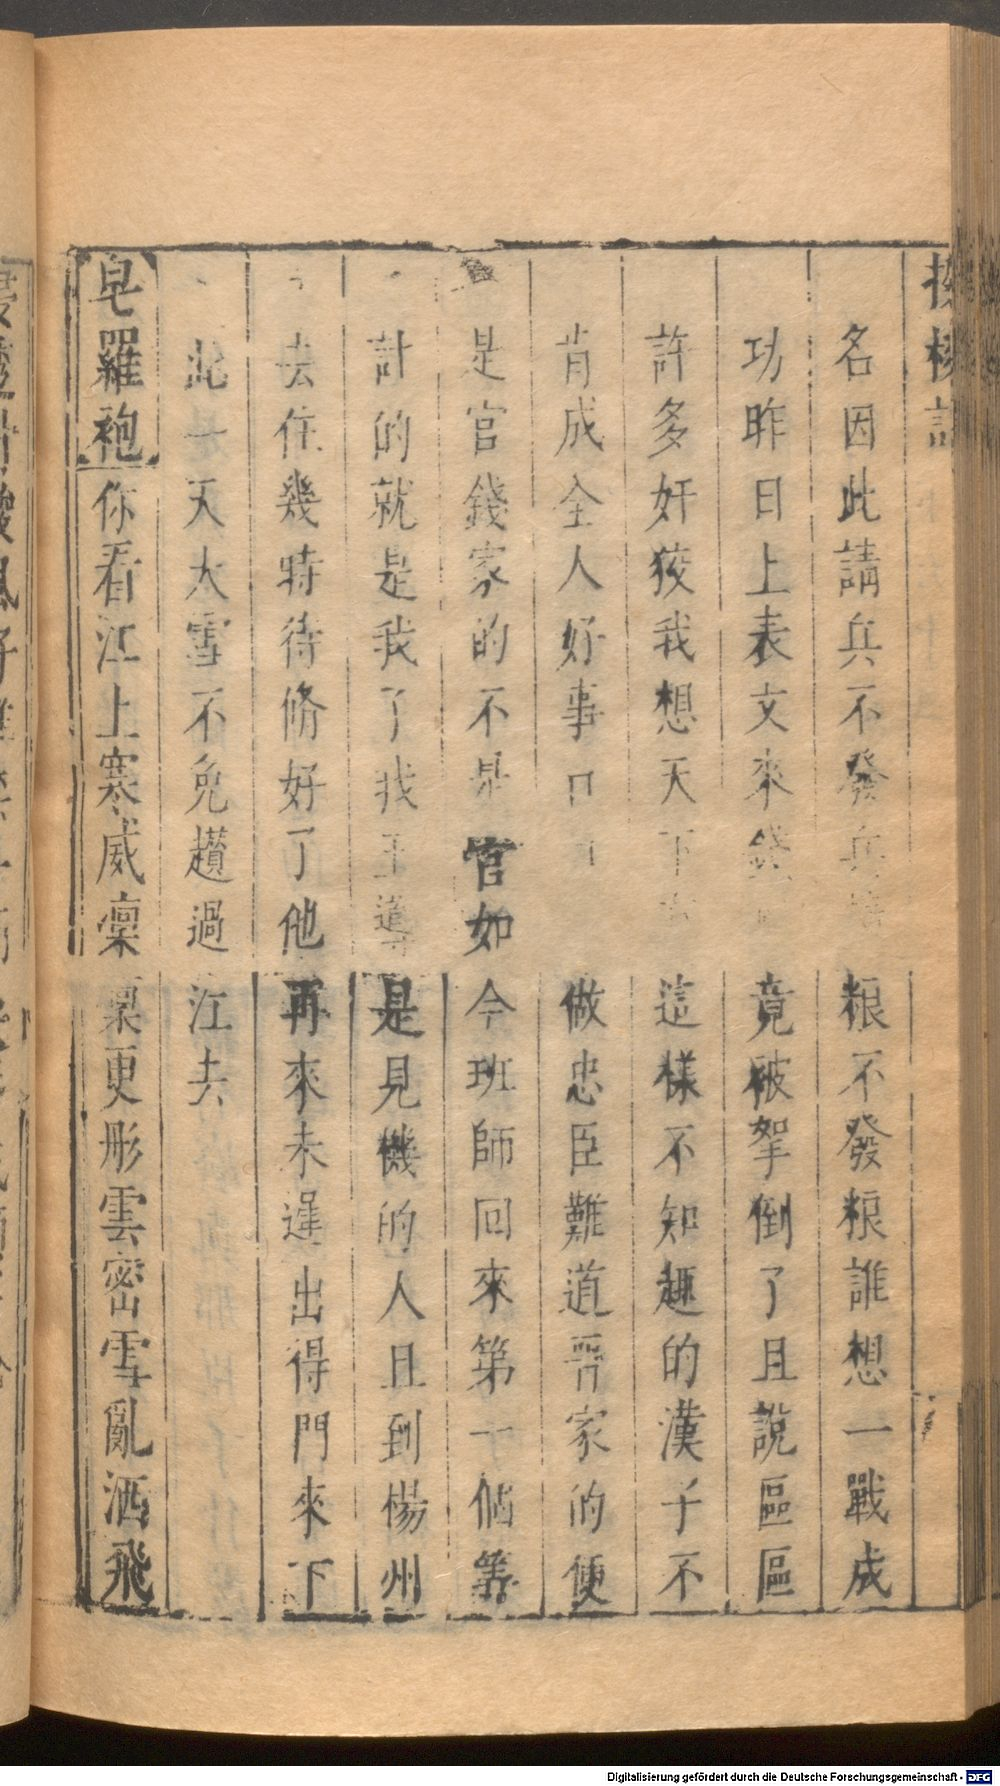 名因此請兵不發兵粮不發粮誰想一戰成
功昨日上表文來竟被拏倒了且說區區
許多奸狡我想天下這樣不知趣的漢子不
肯成全人好事口做忠臣難道晋家的便
是官錢家的不是官如今班師回來第一個筭
計的就是我了我是見機的人且到楊州
去住幾時待脩好了他再來未遲出得門來下
此是天大雪不免趲過江去
皂羅袍你看江上寒威凜凜更彤雲密雪亂洒飛
Digitalisierung gefördert durch die Deutsche Forschungsgemeinschaft - DFG